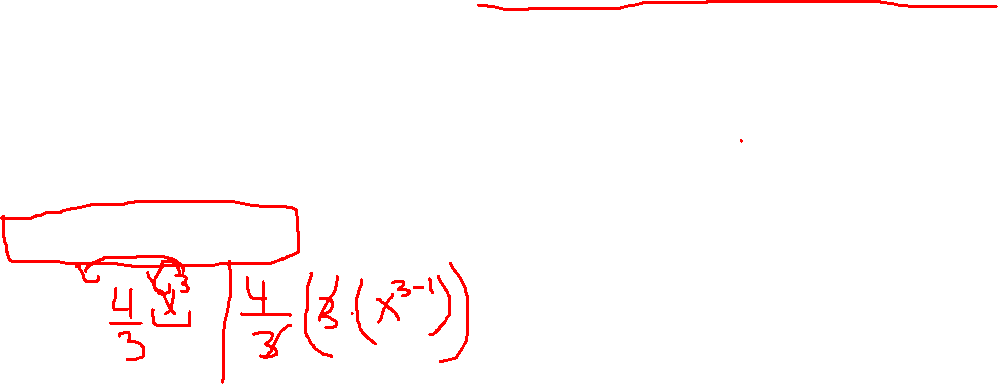 4/3 x^3 | 4/3 (3 · (x^{3-1}))